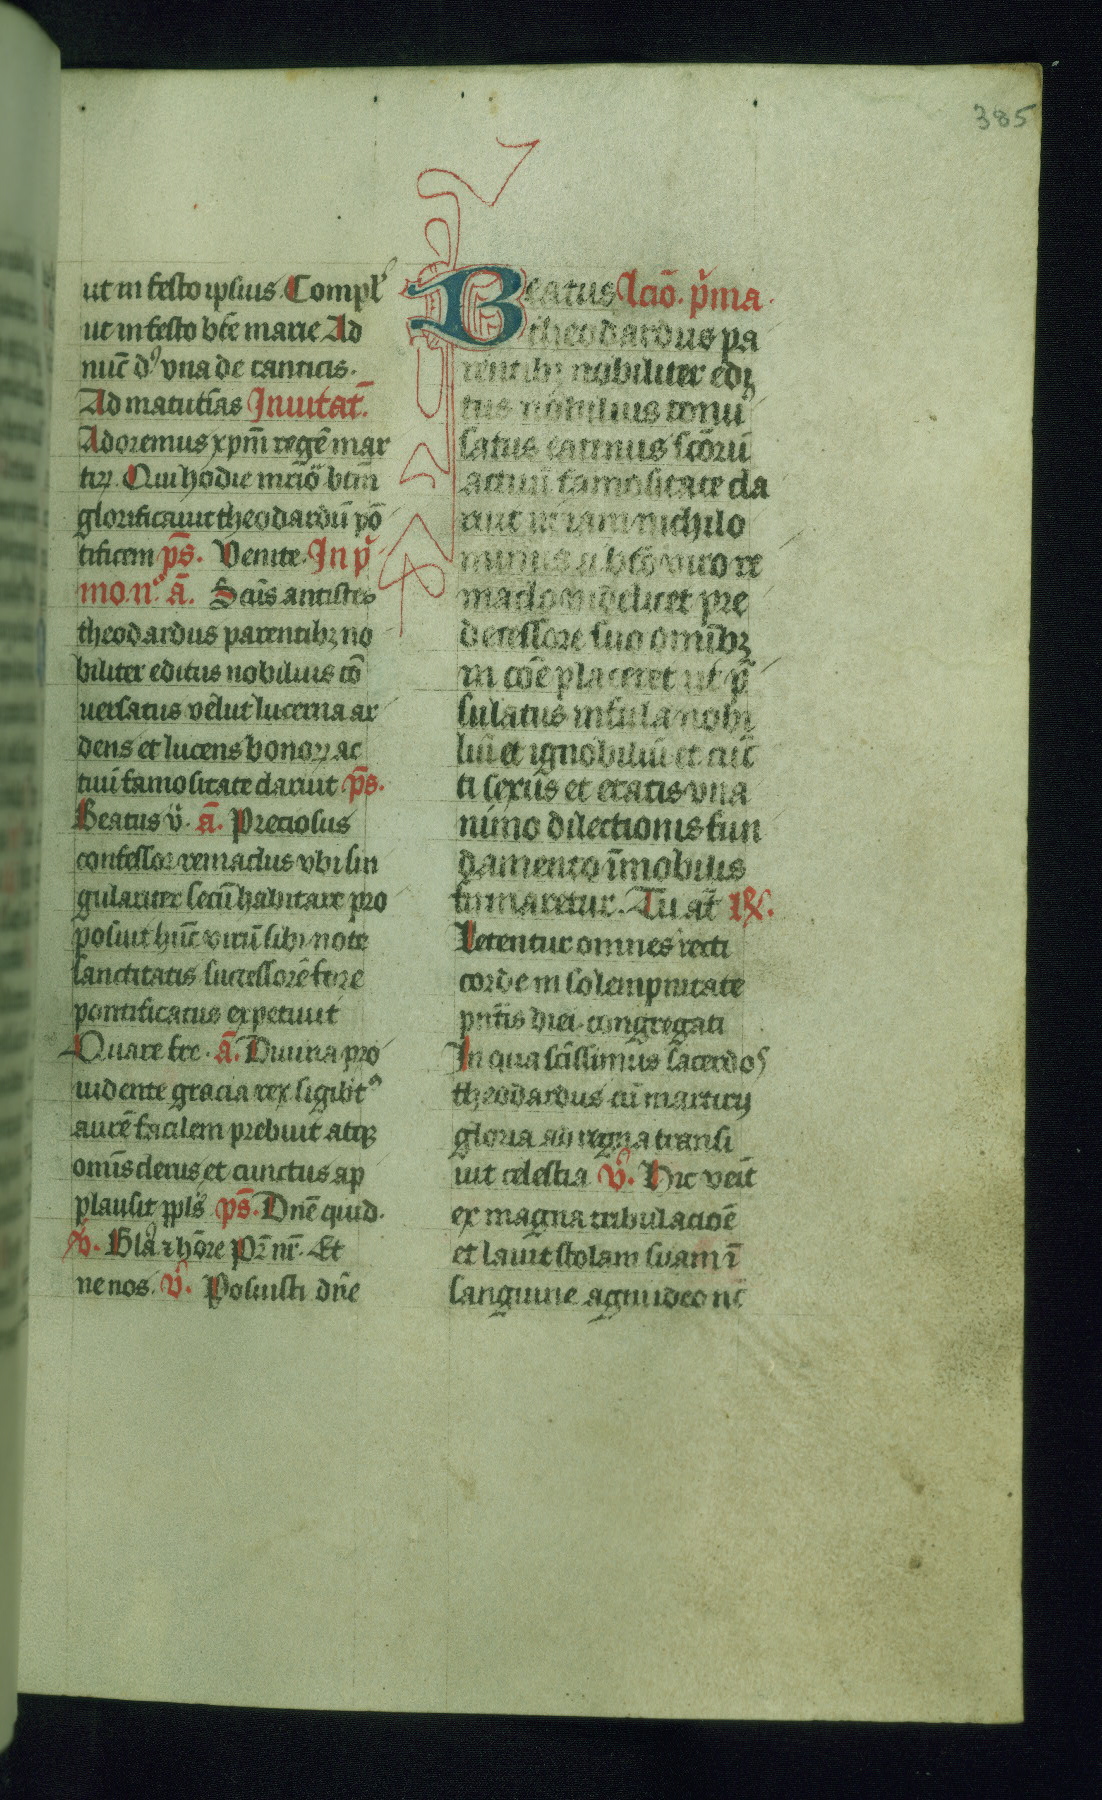 385
ut in festo ipsius. Compl'
ut in festo bt̄e marie Ad
nūc d' vna de canticis.
Ad matutīas Inuitat̄.
Adoremus xp̄m regē mar
tirꝝ. Qui hodie mc̄io btm̄
glorificauit theodardū pō
tificem ps̄. Venite. In p'
mo. n°. ā. Sc̄us antistes
theodardus parentibꝫ no
biliter editus nobilius cō
uersatus velut lucerna ar
dens et lucens bonoꝝ ac
tuū famositate daruit ps̄.
Beatus v̄. ā. Preciosus
confessor remaclus vbi sin
gulariter secū habitare pro
posuit hūc virū sibi note
sanctitatis successorē fore
pontificatus expetiuit
Quare fre. ā. Diuina pro
uidente gracia rex sigibt'
aurē facilem prebuit atqꝫ
omīs clerus et cunctus ap
plausit ppl's ps̄. Dn̄e quid.
v̄. Gl'a ⁊ hōre Pr̄ nr̄. Et
ne nos. v̄. Posuisti dn̄e
Beatus lcīo. p'ma.
theodardus pa
rentibꝫ nobiliter edi
tus nobilius conu
satus eatinus sc̄orū
actuū famositate cla
ruit ut iam nichilo
minus a bt̄o viro re
maclo videlicet pre
decessore suo omībꝫ
in cōe placeret ut p̄
sulatus insula nobi
liū et ignobiliū et cūc
ti sexus et etatis vna
nimo dilectionis fun
damento īmobilius
firmaretur. Tu aūt ꝶ.
Letentur omnes recti
corde in solempnitate
pn̄tis diei congregati
In qua sc̄issimus sacerdos
theodardus cū martirij
gloria ad regna transi
uit celestia v̄. Hic venit
ex magna tribulacōe
et lauit stolam suam ī
sanguine agni ideo nc̄